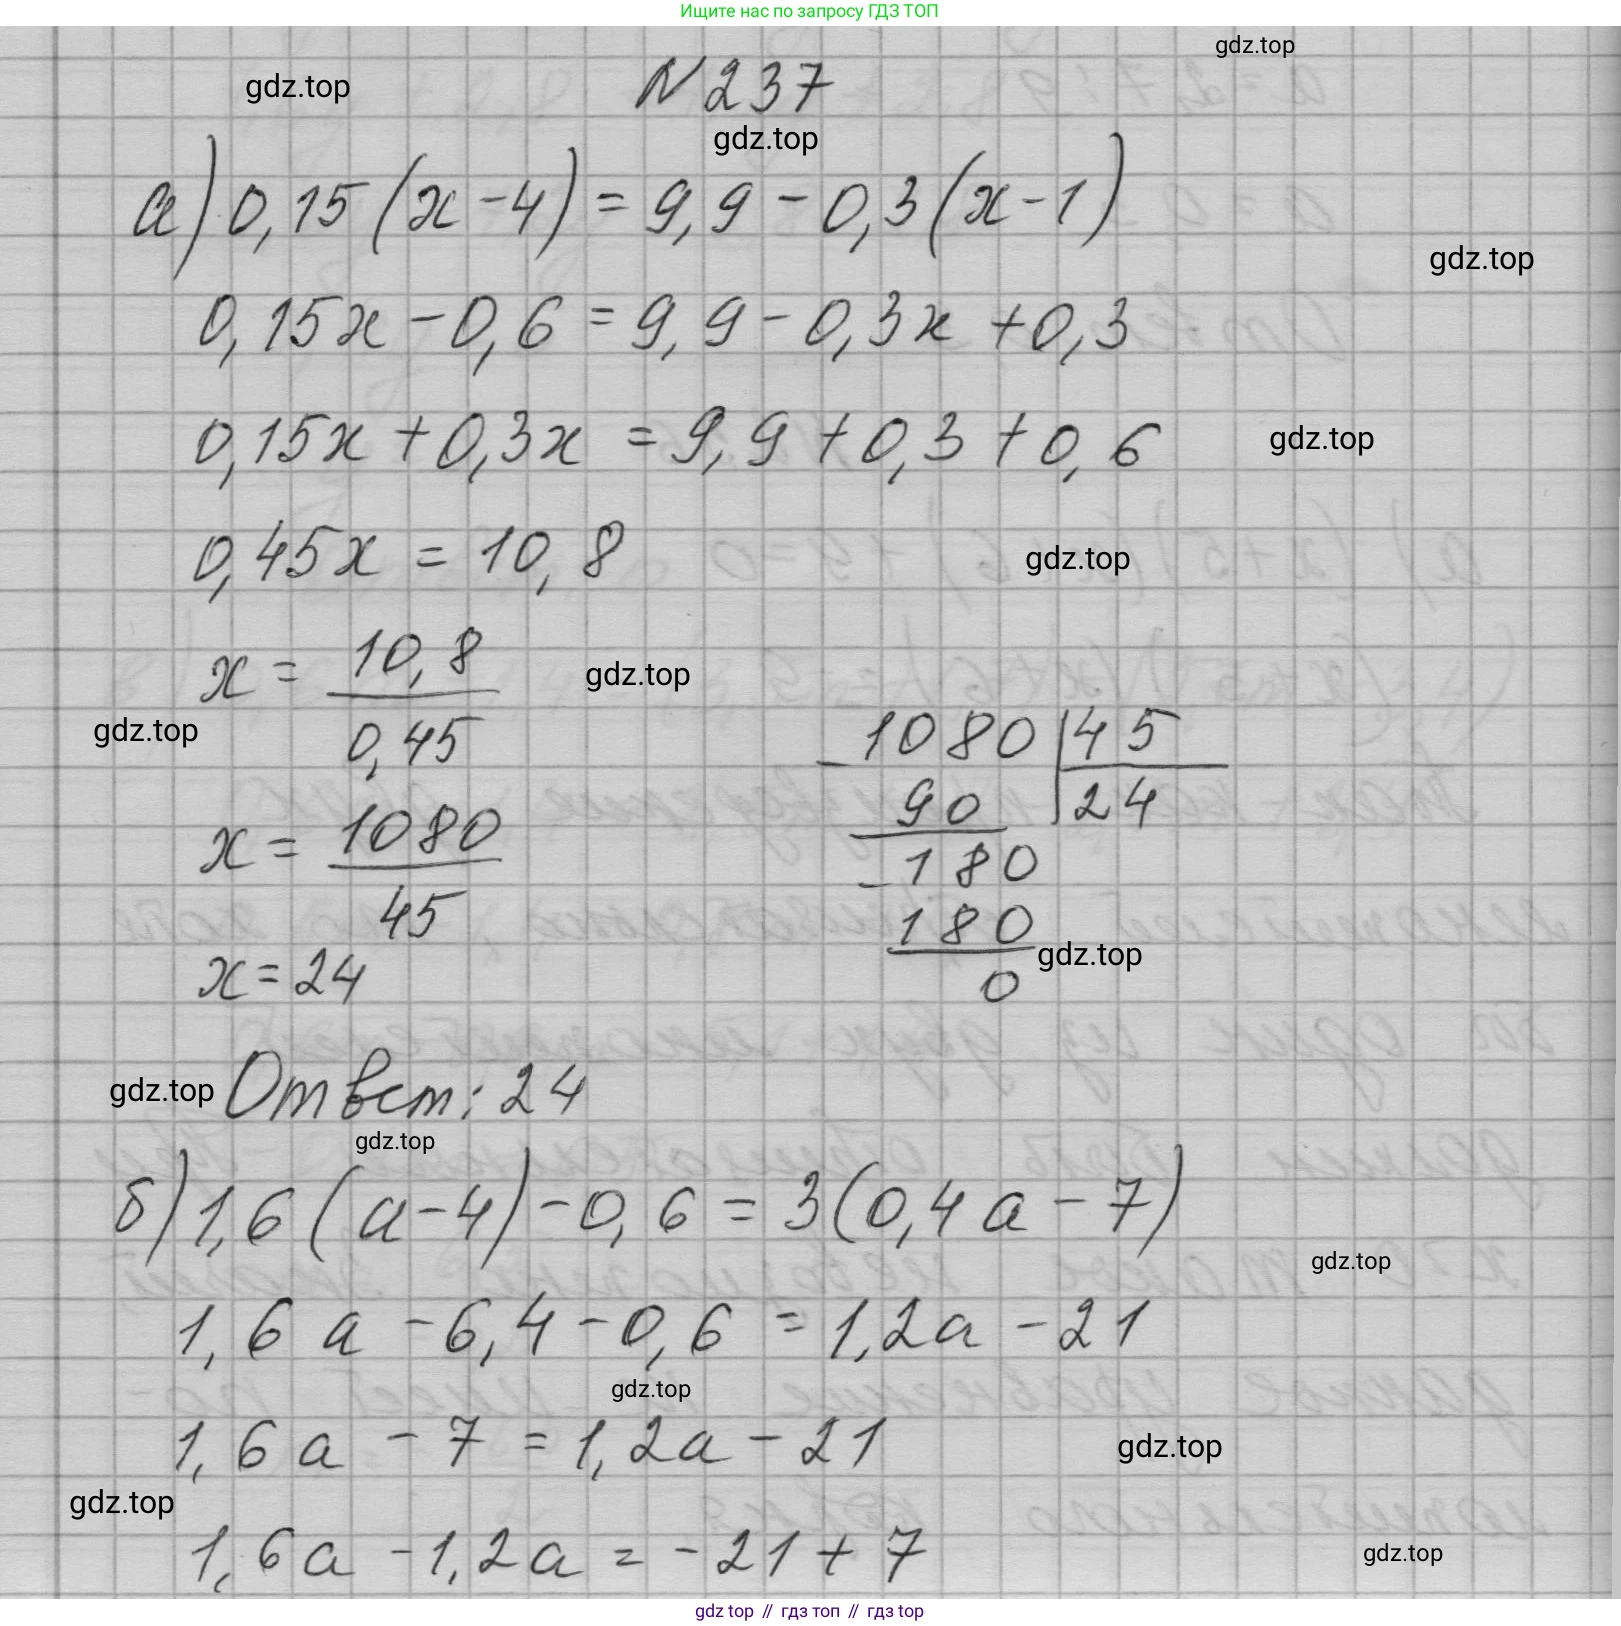 Ищите нас по запросу ГДЗ ТОП
gdz.top
gdz.top
N 237
gdz.top
а) 0,15(x-4)=9,9-0,3(x-1)
gdz.top
0,15x-0,6=9,9-0,3x+0,3
0,15x+0,3x=9,9+0,3+0,6
gdz.top
0,45x=10,8
gdz.top
x=10,8/0,45
gdz.top
gdz.top
x=1080/45
x=24
-1080|45
90 |24
-180
180
gdz.top
0
gdz.top
Ответ: 24
gdz.top
б) 1,6(a-4)-0,6=3(0,4a-7)
gdz.top
1,6a-6,4-0,6=1,2a-21
gdz.top
1,6a-7=1,2a-21
gdz.top
gdz.top
1,6a-1,2a=-21+7
gdz.top
gdz top // гдз топ // гдз top